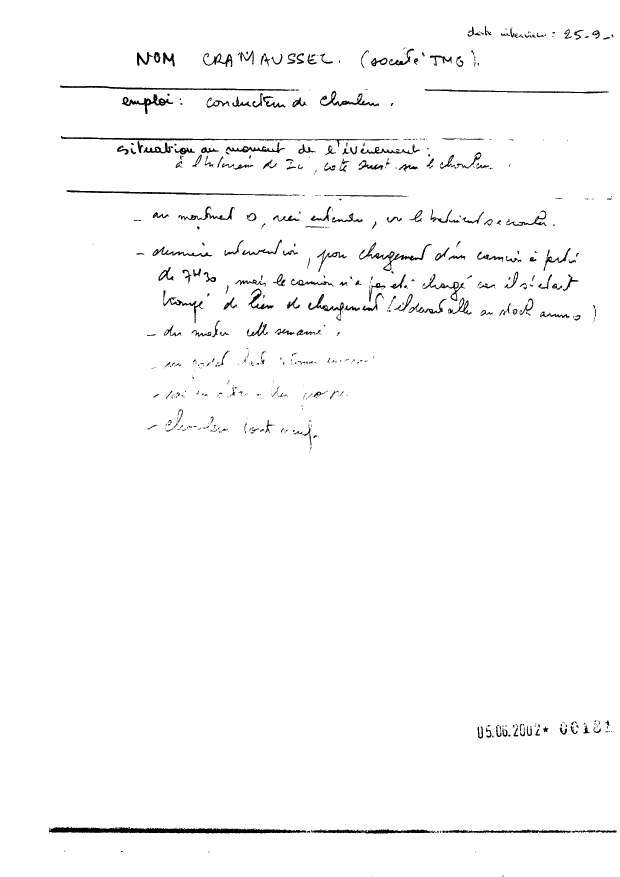 date interview : 25-9-
NOM CRAMAUSSEL. (société TMG).
emploi : conducteur de Chouleur.
situation au moment de l'événement :
à l'intérieur de I, coté ouest sur le chouleur.
- au moment 0, rien entendu, vu le batiment s'ecrouler.
- dernière intervention, pour chargement d'un camion à partir
de 7H30, mais le camion n'a pas été chargé car il s'était
trompé de lieu de chargement (il devait aller au stock )
- du matin cette semaine.
- un godet était
-
- chouleur tout neuf.
05.06.2002* 00181